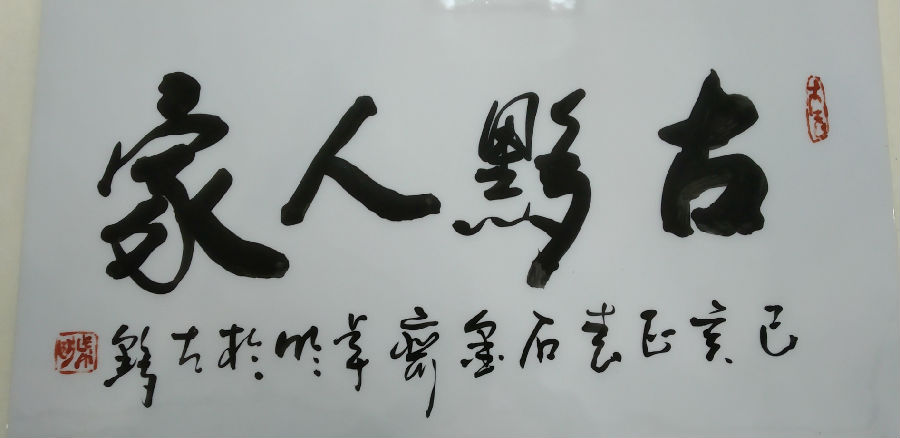 古黟人家
己亥正春石墨齋章明於古黟